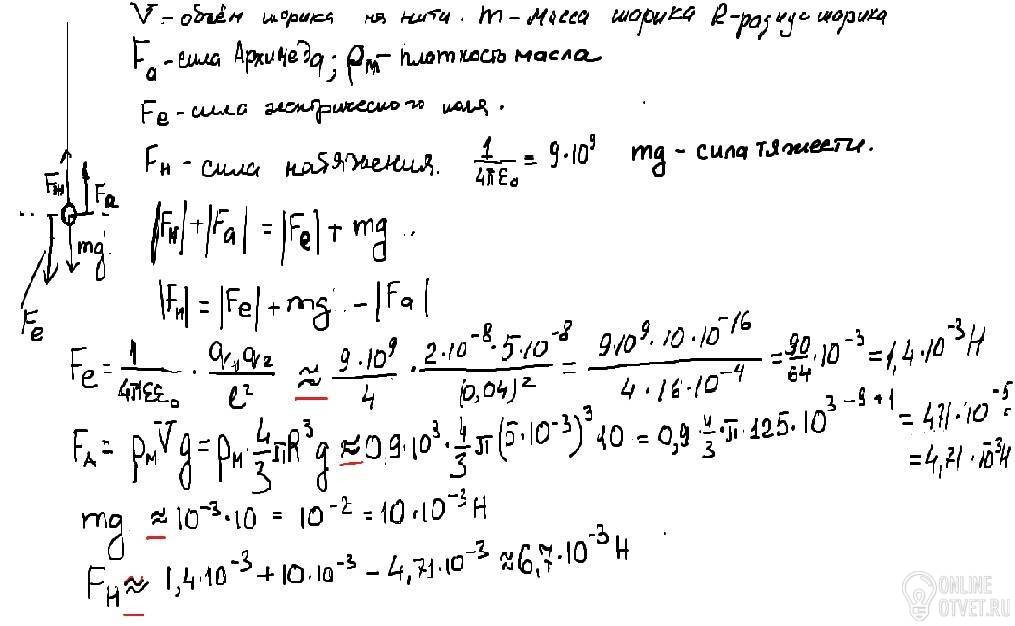 V - объём шарика на нити. m - масса шарика R - радиус шарика
Fa - сила Архимеда; ρм - плотность масла
Fe - сила электрического поля.
Fн - сила натяжения. 1/4πε₀ = 9·10⁹ mg - сила тяжести.
Fн Fa
mg
Fe
|Fн|+|Fa| = |Fe| + mg
|Fн| = |Fe| + mg - |Fa|
Fe = 1/4πεε₀ · q₁q₂/l² ≈ 9·10⁹/4 · 2·10⁻⁸·5·10⁻⁸/(0,04)² = 9·10⁹·10·10⁻¹⁶/4·16·10⁻⁴ = 90/64·10⁻³ = 1,4·10⁻³ Н
FA = ρм V g = ρм·4/3πR³g ≈ 0,9·10³·4/3π(5·10⁻³)³·10 = 0,9·4/3·π·125·10³⁻⁹⁺¹ = 471·10⁻⁵
= 4,71·10⁻³Н
mg ≈ 10⁻³·10 = 10⁻² = 10·10⁻³ Н
Fн ≈ 1,4·10⁻³ + 10·10⁻³ - 4,71·10⁻³ ≈ 6,7·10⁻³ Н
ONLINE
OTVET.RU